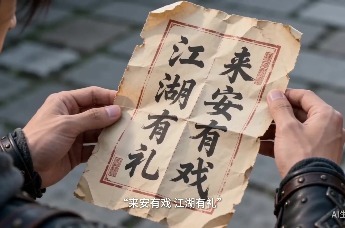 来安有戏
江湖有礼
“来安有戏 江湖有礼”
AI生